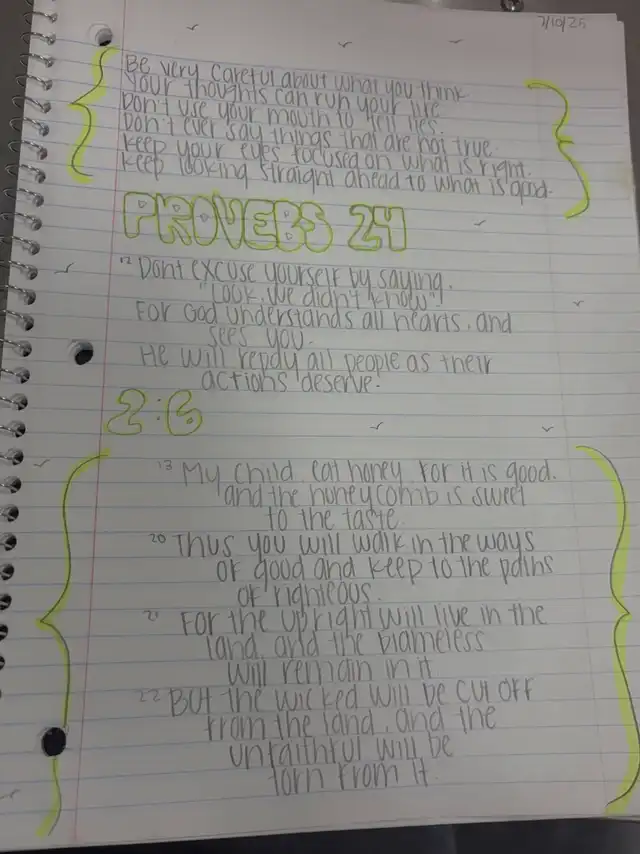 7/10/25
Be very careful about what you think
Your thoughts can run your life.
Don't use your mouth to tell lies.
Don't ever say things that are not true.
Keep your eyes focused on what is right.
Keep looking straight ahead to what is good.
PROVERBS 24
12 Dont excuse yourself by saying.
"Look, we didn't know"
For God understands all hearts, and
sees you.
He will repay all people as their
actions deserve.
2:6
13 My child, eat honey for it is good.
and the honeycomb is sweet
to the taste.
20 Thus you will walk in the ways
of good and keep to the paths
of righteous.
21 For the upright will live in the
land, and the blameless
will remain in it
22 But the wicked will be cut off
from the land, and the
unfaithful will be
torn from it.